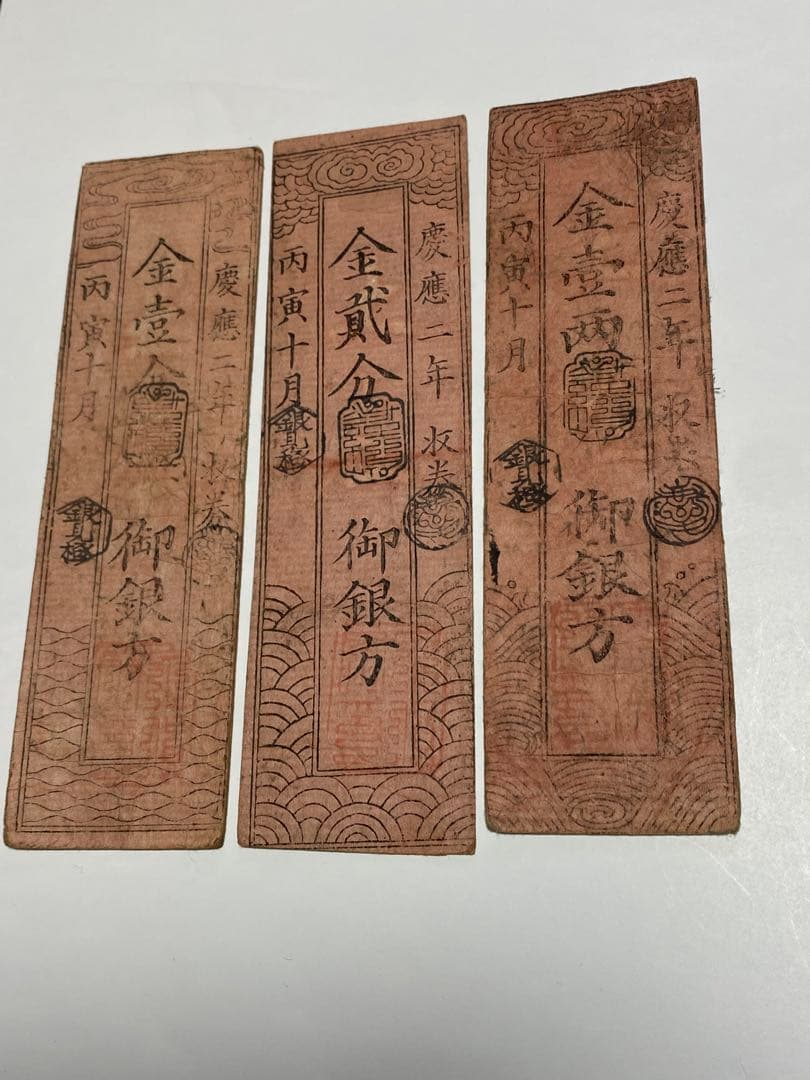 慶應二年
金壹分
御銀方
丙寅十月
慶應二年
金貮分
御銀方
丙寅十月
慶應二年
金壹两
御銀方
丙寅十月